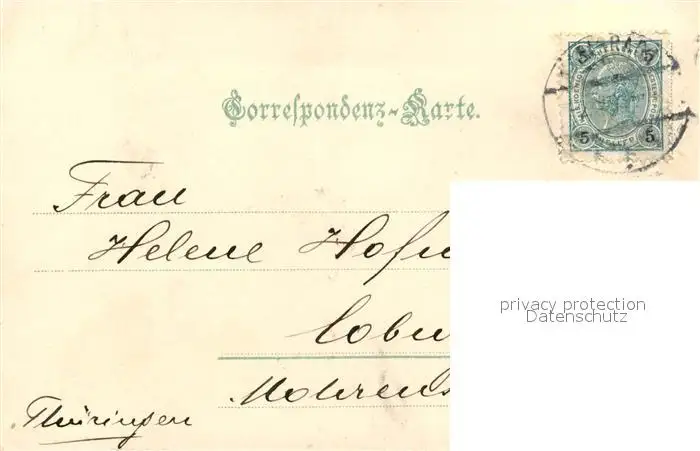 Correspondenz-Karte.
5 5
5 5
Frau
Helene Hofm
Cobu
Mohrens
Thüringen
privacy protection
Datenschutz